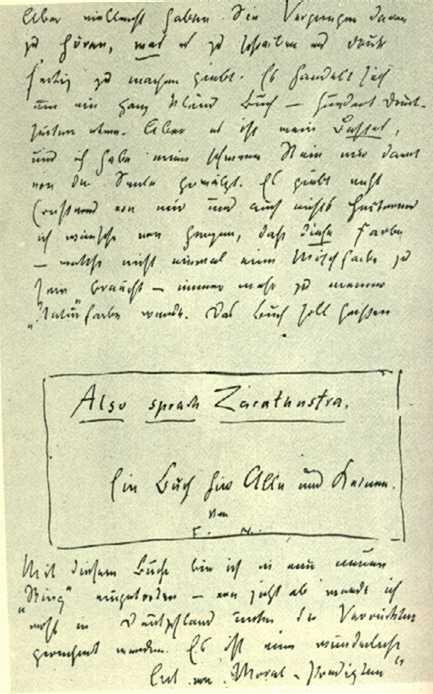 Aber vielleicht haben Sie Vergnügen daran
zu hören, was es zu schreiben und druck
fertig zu machen giebt. Es handelt sich
um ein ganz kleines Buch — hundert Druck-
seiten etwa. Aber es ist mein Bestes,
und ich habe einen schweren Stein mir damit
von der Seele gewälzt. Es giebt nichts
Ernsteres von mir und auch nichts Heitereres
ich wünsche von Herzen, daß diese Farbe
— welche nicht einmal eine Mischfarbe zu
sein braucht — immer mehr zu meiner
„Natur“farbe werde. Das Buch soll heißen
Also sprach Zarathustra.
Ein Buch für Alle und Keinen.
Von
F. N.
Mit diesem Buche bin ich in einen neuen
„Ring“ eingetreten — von jetzt ab werde ich
wohl in Deutschland unter die Verrückten
gerechnet werden. Es ist eine wunderliche
Art von „Moral-Predigten“